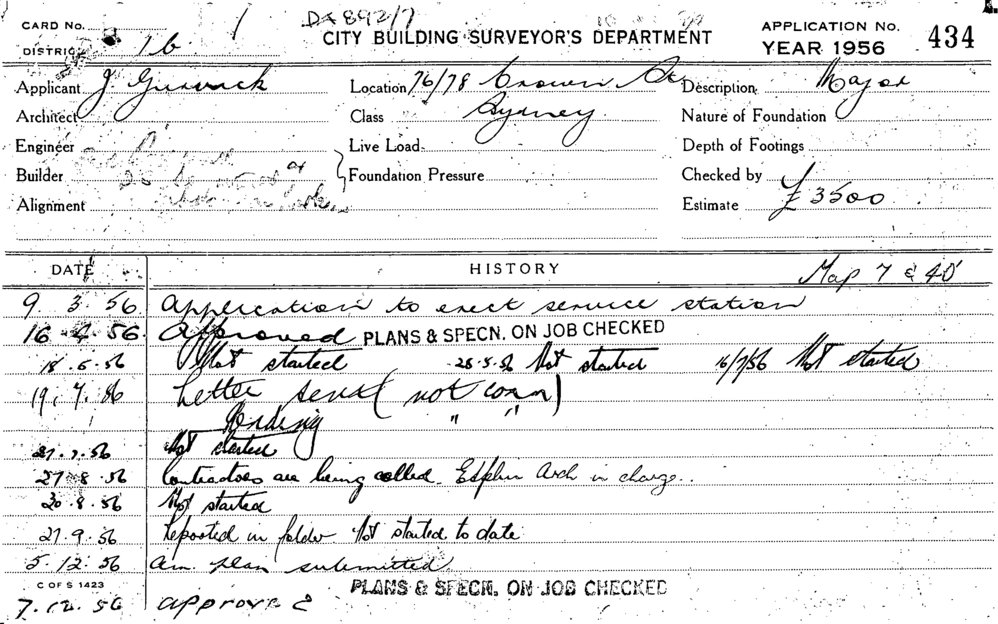 CARD NO. DA 892/7
DISTRICT 16
CITY BUILDING SURVEYOR'S DEPARTMENT
APPLICATION NO. 434
YEAR 1956
Applicant J. Location 76/78 Crown St Description Major
Architect Class Sydney Nature of Foundation
Engineer Live Load Depth of Footings
Builder Foundation Pressure Checked by
Alignment Estimate £3500
DATE HISTORY Map 7 & 40
9. 3. 56 Application to erect service station
16. 4. 56 Approved PLANS & SPECN. ON JOB CHECKED
18.5.56 Not started 28.5.56 Not started 16/7/56 Not started
19.7.56 Letter sent (not com)
Pending " "
27.7.56 Not started
27.8.56 Contractors are being called. Esplin Arch in charge..
30.8.56 Not started
27.9.56 Reported in folder Not started to date
5.12.56 Am. plan submitted.
C OF S 1423 PLANS & SPECN. ON JOB CHECKED
7.12.56 approved